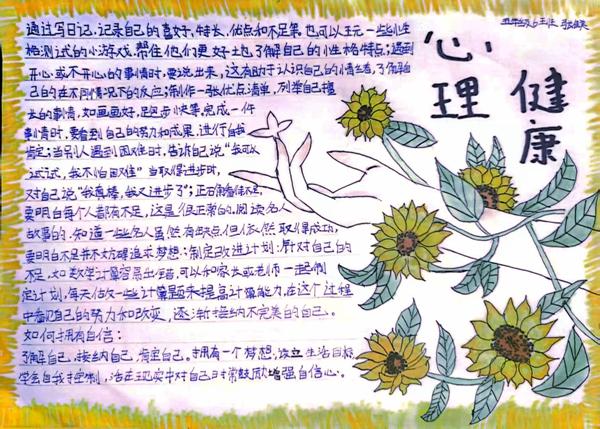 心理
健康
通过写日记,记录自己的喜好,特长,优点和不足等。也可以玩一些性
格测试的小游戏,帮住他们更好地了解自己的性格特点;遇到
开心或不开心的事情时,要说出来,这有助于认识自己的情绪,了解自
己的在不同情况下的反应;制作一张优点清单,列举自己擅
长的事情,如画画好,跑步快等,完成一件
事情时,要看到自己的努力和成果,进行自我
肯定;当别人遇到困难时,告诉自己说“我可以
试一试,我不怕困难”当取得进步时,
对自己说“我真棒,我又进步了”;正确看待不足,
要明白每个人都有不足,这是很正常的。阅读名人
故事的,知道一些名人虽然有缺点但依然取得成功,
要明白不足并不妨碍追求梦想;制定改进计划:针对自己的
不足,如数学计算容易出错,可以和家长或老师一起制
定计划,每天做一些计算题来提高计算能力,在这个过程
中看见自己的努力和改变,逐渐接纳不完美的自己。
如何拥有自信:
了解自己,接纳自己,肯定自己。拥有一个梦想,设立生活目标,
学会自我控制,活在现实中对自己时常鼓励增强自信心。